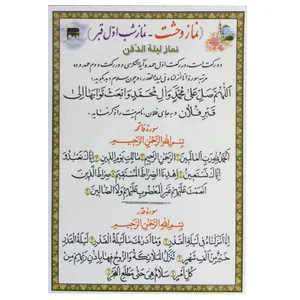 (نماز وحشت - نماز شب اول قبر)
نماز لیلة الدفن
دو رکعت است، در رکعت اول حمد و آیة الکرسی و در رکعت دوم حمد و ده
مرتبه سوره انا انزلناه فی لیلة القدر، و چون سلام دهد بگوید:
اَللّهُمَّ صَلِّ عَلی مُحَمَّدٍ وَآلِ مُحَمَّدٍ وَابْعَثْ ثَوابَها اِلی
قَبْرِ فُلانٍ و بجای فلان، نام میت را ذکر نماید.
سورهٔ فاتحه
بِسْمِ اللهِ الرَّحْمنِ الرَّحیمِ
اَلْحَمْدُ لِلّهِ رَبِّ الْعالَمینَ الرَّحْمنِ الرَّحیمِ مالِکِ یَوْمِ الدّینِ اِیّاکَ نَعْبُدُ
وَ اِیّاکَ نَسْتَعینُ اِهْدِنَا الصِّراطَ الْمُسْتَقیمَ صِراطَ الَّذینَ
اَنْعَمْتَ عَلَیْهِمْ غَیْرِ الْمَغْضُوبِ عَلَیْهِمْ وَلاَ الضّالّینَ
سورهٔ قدر
بِسْمِ اللهِ الرَّحْمنِ الرَّحیمِ
اِنّا اَنْزَلْناهُ فی لَیْلَةِ الْقَدْرِ وَما اَدْریکَ ما لَیْلَةُ الْقَدْرِ لَیْلَةُ الْقَدْرِ
خَیْرٌ مِنْ اَلْفِ شَهْرٍ تَنَزَّلُ الْمَلائِکَةُ وَالرُّوحُ فیها بِاِذْنِ رَبِّهِمْ مِنْ
کُلِّ اَمْرٍ سَلامٌ هِیَ حَتّی مَطْلَعِ الْفَجْرِ